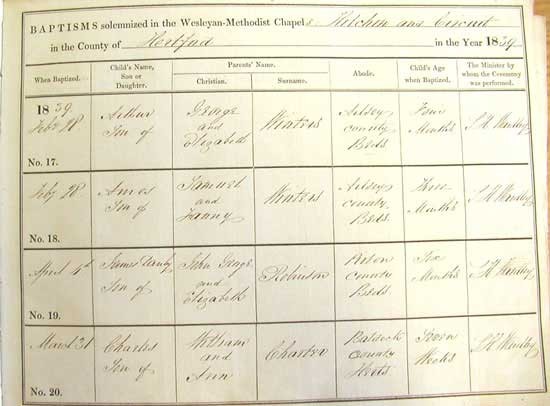 BAPTISMS solemnized in the Wesleyan-Methodist Chapels Hitchin and Circuit
in the County of Hertford in the Year 1839
When Baptized. Child's Name, Son or Daughter. Parents' Name. Christian. Surname. Abode. Child's Age when Baptized. The Minister by whom the Ceremony was performed.
1839
Feby 28 Arthur George Winters Arlsey Four
Son of and County Months
Elizabeth Beds
No. 17.
Feby 28 Amos Samuel Winters Arlsey
Son of and County Months
Fanny Beds
No. 18.
April 4th James John George Robinson County Six
Son of and Beds Months
Elizabeth
No. 19.
March 31 Charles William Charter Baldock Seven
Son of and County Weeks
Ann Herts
No. 20.